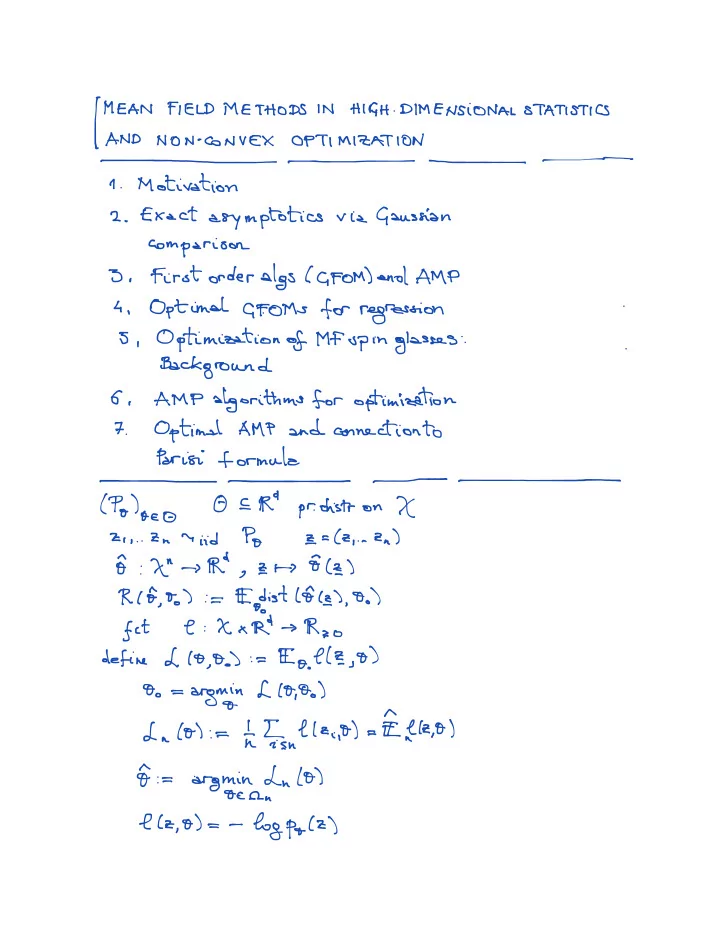 MEAN FIELD METHODS IN HIGH-DIMENSIONAL STATISTICS
AND NON-CONVEX OPTIMIZATION
1. Motivation
2. Exact asymptotics via Gaussian
comparison
3. First order algs (GFOM) and AMP
4. Optimal GFOMs for regression
5. Optimization of MF spin glasses:
Background
6. AMP algorithms for optimization
7. Optimal AMP and connection to
Parisi formula
(P_θ)_{θ∈Θ} Θ ⊆ ℝ^d pr. distr on 𝒳
z₁,.. zₙ ~ iid P_θ z = (z₁,.. zₙ)
θ̂ : 𝒳ⁿ → ℝ^d , z ↦ θ̂(z)
R(θ̂,θ₀) := 𝔼_{θ₀} dist(θ̂(z), θ₀)
fct ℓ : 𝒳 × ℝ^d → ℝ_{≥0}
define ℒ(θ,θ₀) := 𝔼_{θ₀} ℓ(z,θ)
θ₀ = argmin_θ ℒ(θ,θ₀)
ℒₙ(θ) := 1/n ∑_{i≤n} ℓ(z_i,θ) = 𝔼̂ₙ ℓ(z,θ)
θ̂ := argmin_{θ∈Ωₙ} ℒₙ(θ)
ℓ(z,θ) = - log p_θ(z)